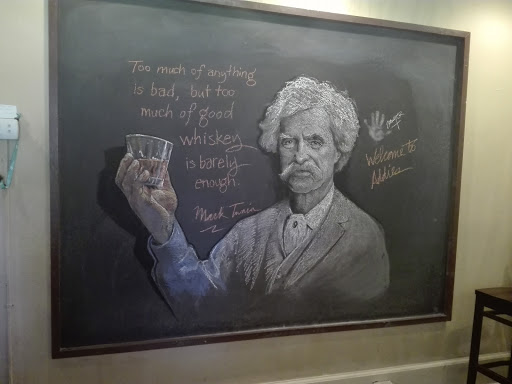 Too much of anything
is bad, but too
much of good
whiskey
is barely
enough.
Mark Twain
Welcome to
Addies